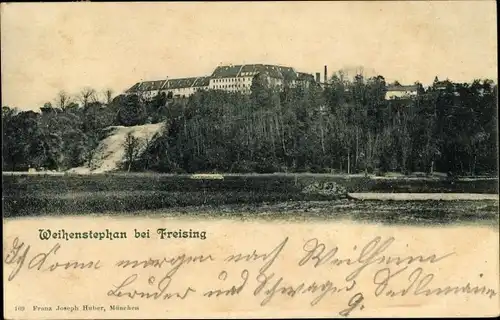 Weihenstephan bei Freising
Ich komme morgen nach Weilheim
Brüder und Schwager G. Sedlmaier
109 Franz Joseph Huber, München